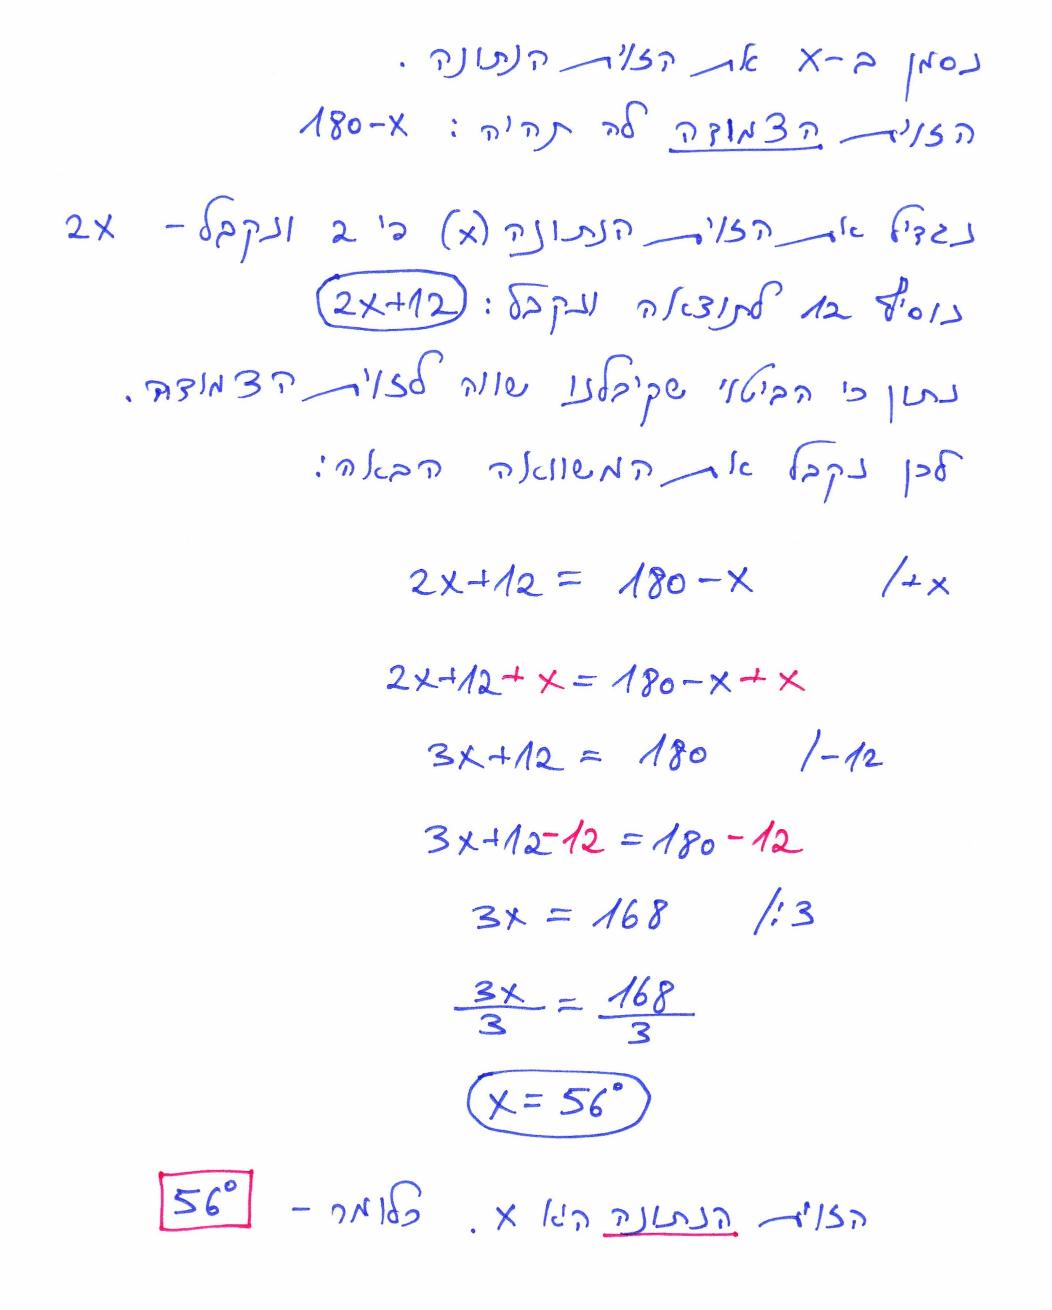 נסמן ב-x את הזוית הנתונה.
הזוית הצמודה לה תהיה: 180-x
נגדיל את הזוית הנתונה (x) פי 2 ונקבל - 2x
נוסיף 12 לתוצאה ונקבל: 2x+12
נתון כי הביטוי שקיבלנו שווה לזוית הצמודה.
לכן נקבל את המשוואה הבאה:
2x+12 = 180-x /+x
2x+12+x = 180-x+x
3x+12 = 180 /-12
3x+12-12 = 180-12
3x = 168 /:3
3x/3 = 168/3
x = 56°
הזוית הנתונה היא x. כלומר - 56°